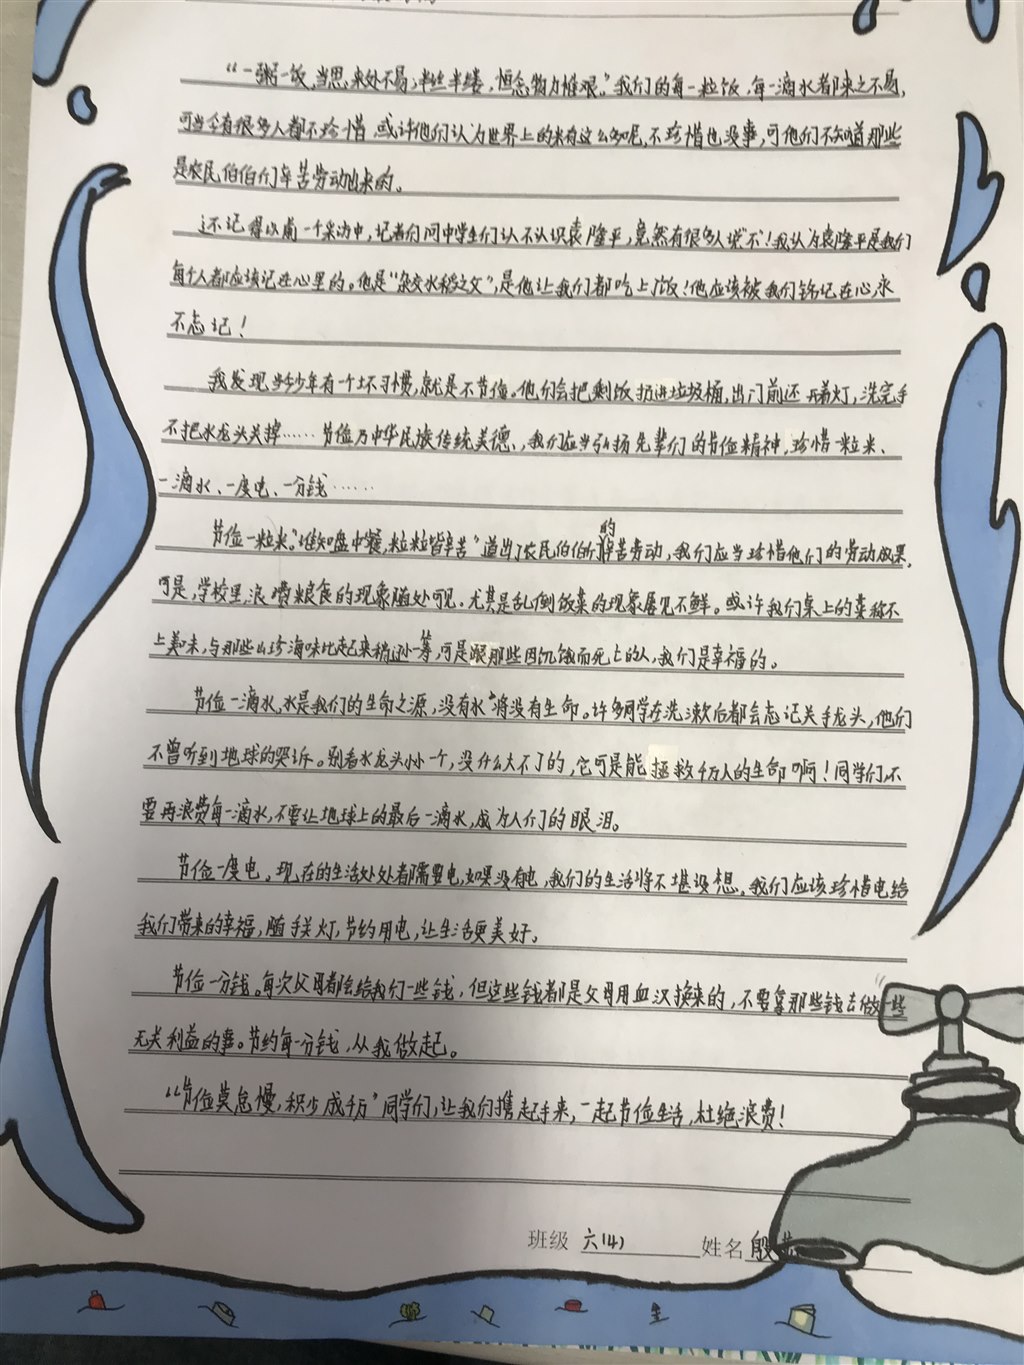 “一粥一饭,当思来处不易;半丝半缕,恒念物力惟艰。”我们的每一粒饭,每一滴水都来之不易,
可当今有很多人都不珍惜,或许他们认为世界上的米有这么多呢,不珍惜也没事,可他们不知道那些
是农民伯伯们辛苦劳动出来的。
还记得以前一个采访中,记者们问中学生们认不认识袁隆平,竟然有很多人说“不”!我认为袁隆平是我们
每个人都应该记在心里的。他是“杂交水稻之父”,是他让我们都吃上了饭!他应该被我们铭记在心,永
不忘记!
我发现当今少年有一个坏习惯,就是不节俭。他们会把剩饭扔进垃圾桶,出门前还开着灯,洗完手
不把水龙头关掉……节俭乃中华民族传统美德、我们应当弘扬先辈们的节俭精神,珍惜一粒米、
一滴水、一度电、一分钱……
节俭一粒米。“谁知盘中餐,粒粒皆辛苦”道出了农民伯伯们的辛苦劳动,我们应当珍惜他们的劳动成果,
可是,学校里,浪费粮食的现象随处可见。尤其是乱倒饭菜的现象屡见不鲜。或许我们桌上的菜称不
上美味,与那些山珍海味比起来稍逊一筹,可是跟那些因饥饿而死亡的人,我们是幸福的。
节俭一滴水,水是我们的生命之源,没有水,将没有生命。许多同学在洗漱后都会忘记关手龙头,他们
不曾听到地球的哭诉。别看水龙头小小一个,没什么大不了的,它可是能拯救千万人的生命啊!同学们,不
要再浪费每一滴水,不要让地球上的最后一滴水,成为人们的眼泪。
节俭一度电。现在的生活处处都需要电,如果没有电,我们的生活将不堪设想。我们应该珍惜电给
我们带来的幸福,随手关灯,节约用电,让生活更美好。
节俭一分钱。每次父母都会给我们一些钱,但这些钱都是父母用血汉换来的,不要拿那些钱去做一些
无关利益的事。节约每一分钱,从我做起。
“节俭莫怠慢,积少成千万”同学们,让我们携起手来,一起节俭生活,杜绝浪费!
班级 六(4) 姓名 殷